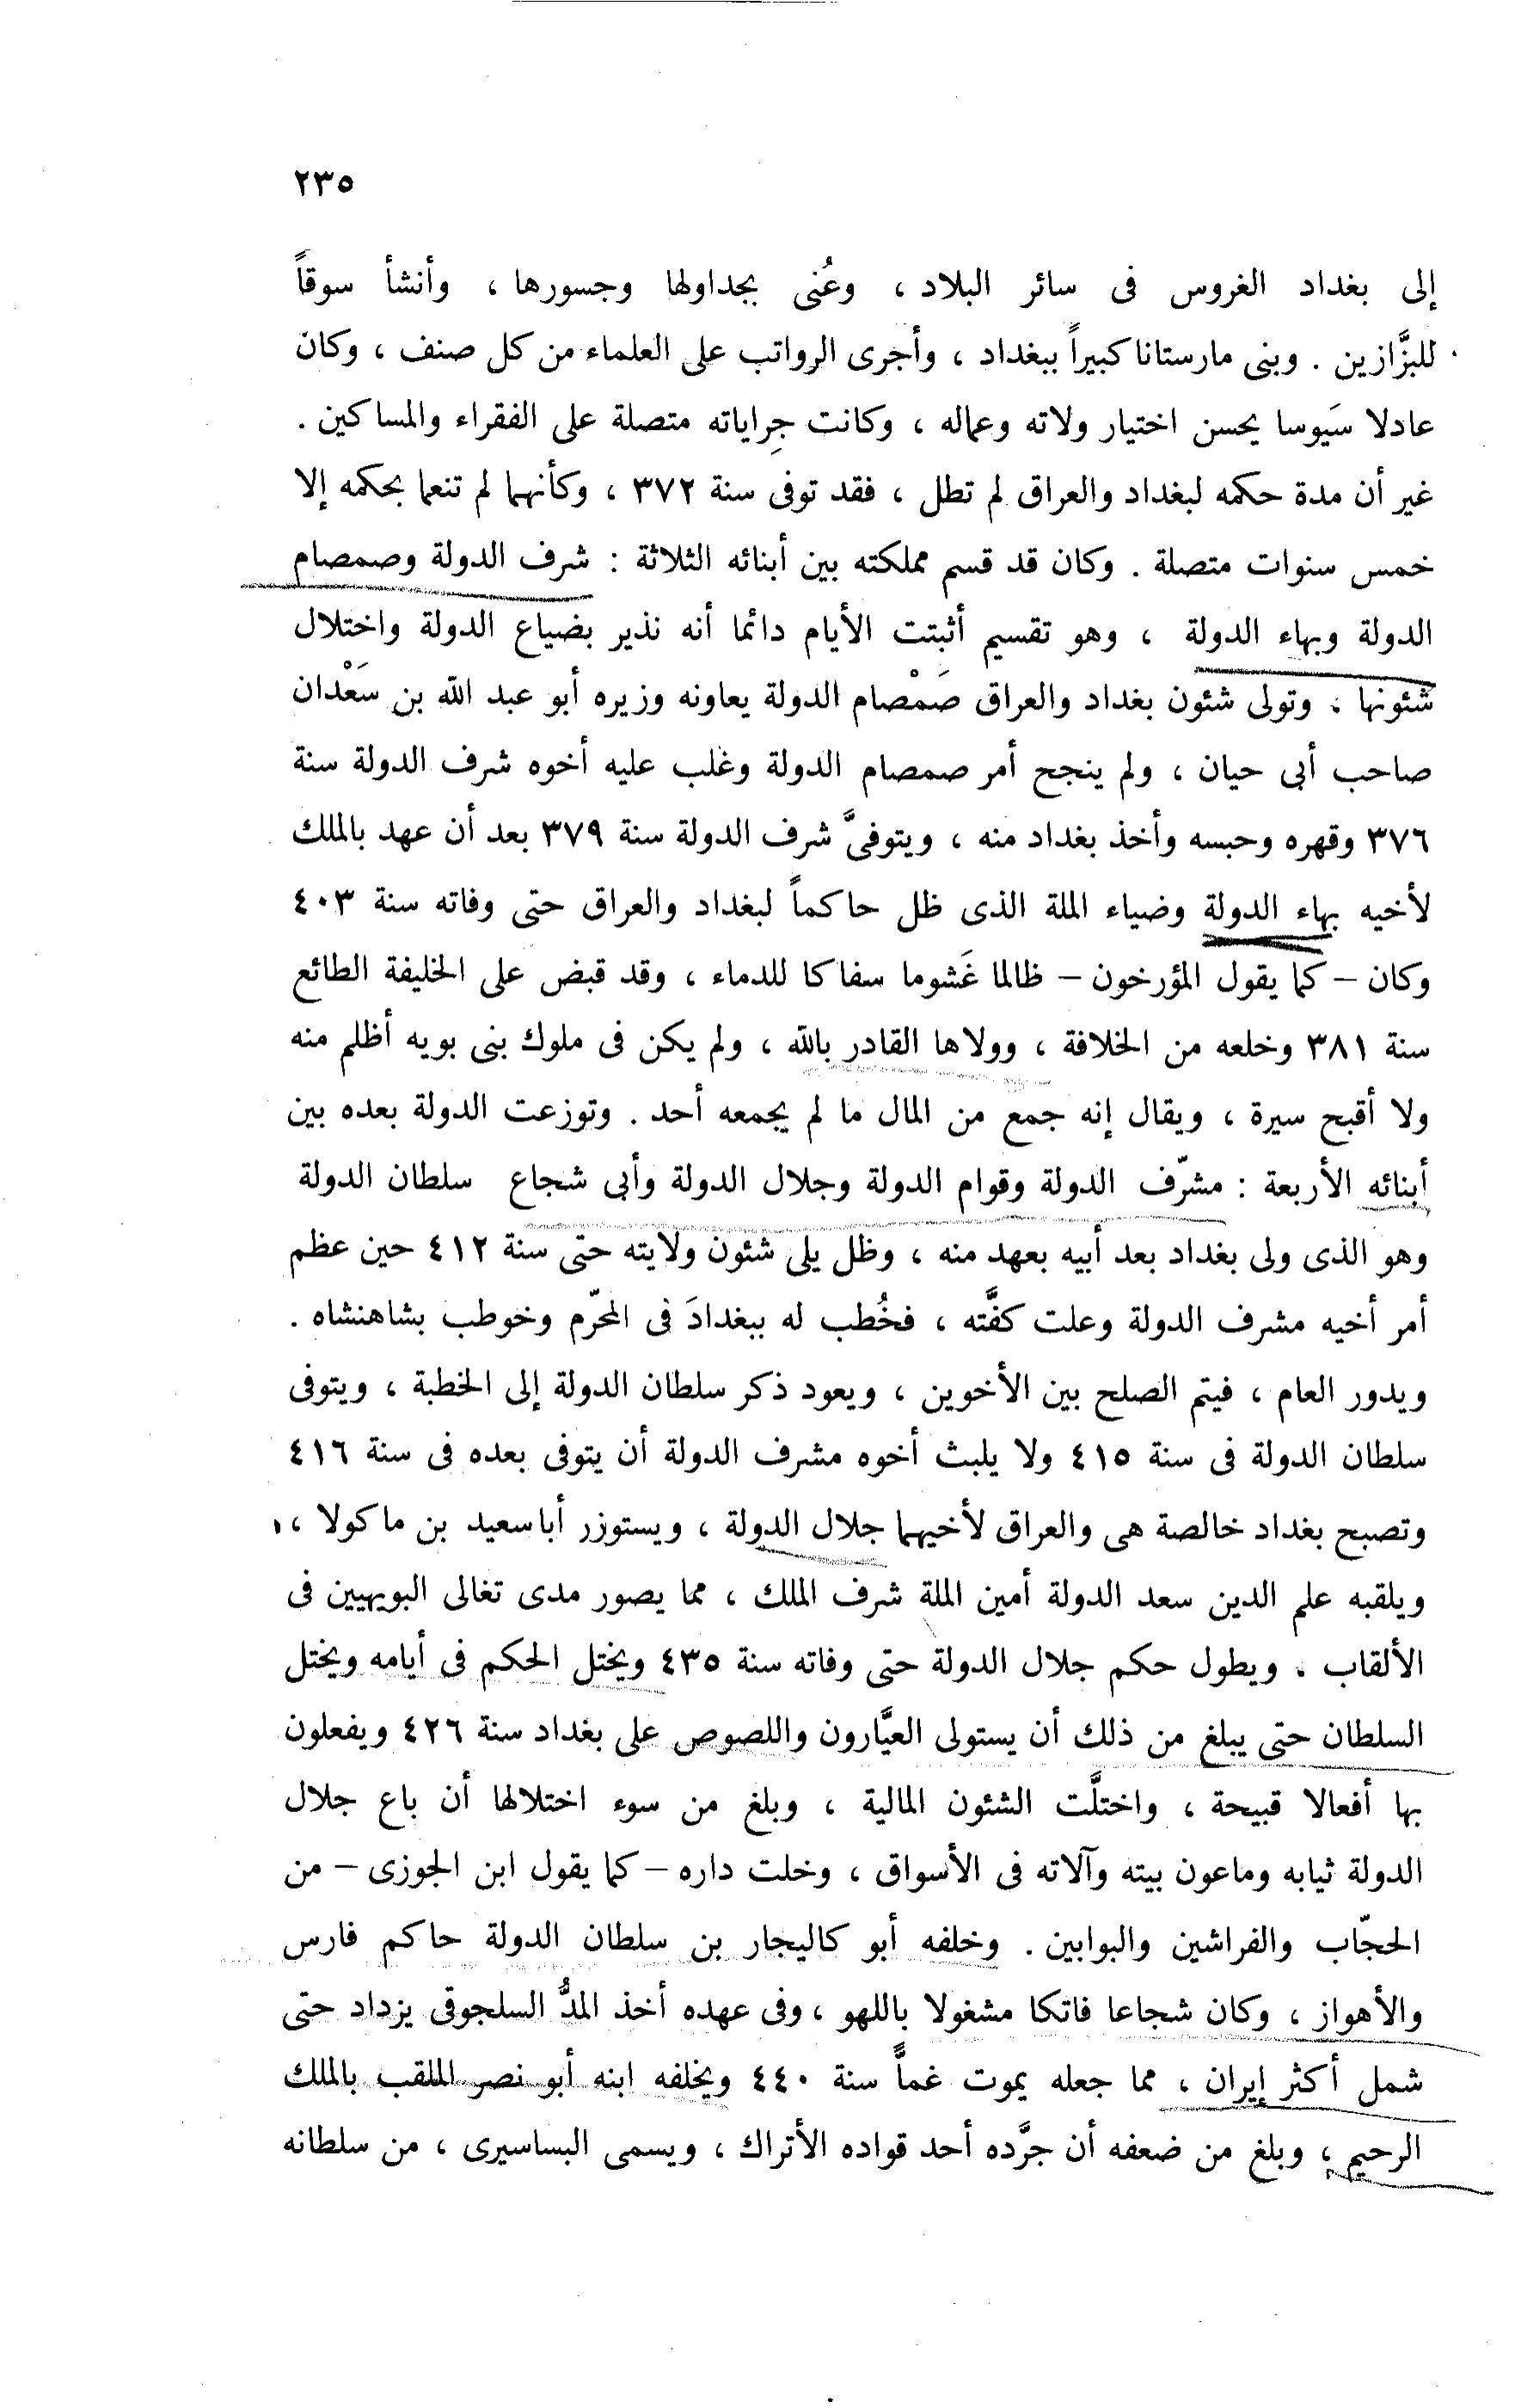 ٢٣٥
إلى بغداد الغروس فى سائر البلاد ، وعُنى بجداولها وجسورها ، وأنشأ سوقاً
للبزَّازين . وبنى مارستانا كبيراً ببغداد ، وأجرى الرواتب على العلماء من كل صنف ، وكان
عادلا سَيوسا يحسن اختيار ولاته وعماله ، وكانت جِراياته متصلة على الفقراء والمساكين .
غير أن مدة حكمه لبغداد والعراق لم تطل ، فقد توفى سنة ٣٧٢ ، وكأنهما لم تنعما بحكمه إلا
خمس سنوات متصلة . وكان قد قسم مملكته بين أبنائه الثلاثة : شرف الدولة وصمصام
الدولة وبهاء الدولة ، وهو تقسيم أثبتت الأيام دائما أنه نذير بضياع الدولة واختلال
شئونها ، وتولى شئون بغداد والعراق صَمْصام الدولة يعاونه وزيره أبو عبد الله بن سَعْدان
صاحب أبى حيان ، ولم ينجح أمر صمصام الدولة وغلب عليه أخوه شرف الدولة سنة
٣٧٦ وقهره وحبسه وأخذ بغداد منه ، ويتوفىَّ شرف الدولة سنة ٣٧٩ بعد أن عهد بالملك
لأخيه بهاء الدولة وضياء الملة الذى ظل حاكماً لبغداد والعراق حتى وفاته سنة ٤٠٣
وكان – كما يقول المؤرخون – ظالما غَشوما سفاكا للدماء ، وقد قبض على الخليفة الطائع
سنة ٣٨١ وخلعه من الخلافة ، وولاها القادر بالله ، ولم يكن فى ملوك بنى بويه أظلم منه
ولا أقبح سيرة ، ويقال إنه جمع من المال ما لم يجمعه أحد . وتوزعت الدولة بعده بين
أبنائه الأربعة : مشرّف الدولة وقوام الدولة وجلال الدولة وأبى شجاع سلطان الدولة
وهو الذى ولى بغداد بعد أبيه بعهد منه ، وظل يلى شئون ولايته حتى سنة ٤١٢ حين عظم
أمر أخيه مشرف الدولة وعلت كفَّته ، فخُطب له ببغدادَ فى المحرّم وخوطب بشاهنشاه .
ويدور العام ، فيتم الصلح بين الأخوين ، ويعود ذكر سلطان الدولة إلى الخطبة ، ويتوفى
سلطان الدولة فى سنة ٤١٥ ولا يلبث أخوه مشرف الدولة أن يتوفى بعده فى سنة ٤١٦
وتصبح بغداد خالصة هى والعراق لأخيهما جلال الدولة ، ويستوزر أبا سعيد بن ماكولا ،
ويلقبه علم الدين سعد الدولة أمين الملة شرف الملك ، مما يصور مدى تغالى البويهيين فى
الألقاب . ويطول حكم جلال الدولة حتى وفاته سنة ٤٣٥ ويختل الحكم فى أيامه ويختل
السلطان حتى يبلغ من ذلك أن يستولى العيَّارون واللصوص على بغداد سنة ٤٢٦ ويفعلون
بها أفعالا قبيحة ، واختلَّت الشئون المالية ، وبلغ من سوء اختلالها أن باع جلال
الدولة ثيابه وماعون بيته وآلاته فى الأسواق ، وخلت داره – كما يقول ابن الجوزى – من
الحجّاب والفراشين والبوابين . وخلفه أبو كاليجار بن سلطان الدولة حاكم فارس
والأهواز ، وكان شجاعا فاتكا مشغولا باللهو ، وفى عهده أخذ المدُّ السلجوقى يزداد حتى
شمل أكثر إيران ، مما جعله يموت غماًّ سنة ٤٤٠ ويخلفه ابنه أبو نصر الملقب بالملك
الرحيم ، وبلغ من ضعفه أن جرَّده أحد قواده الأتراك ، ويسمى البساسيرى ، من سلطانه